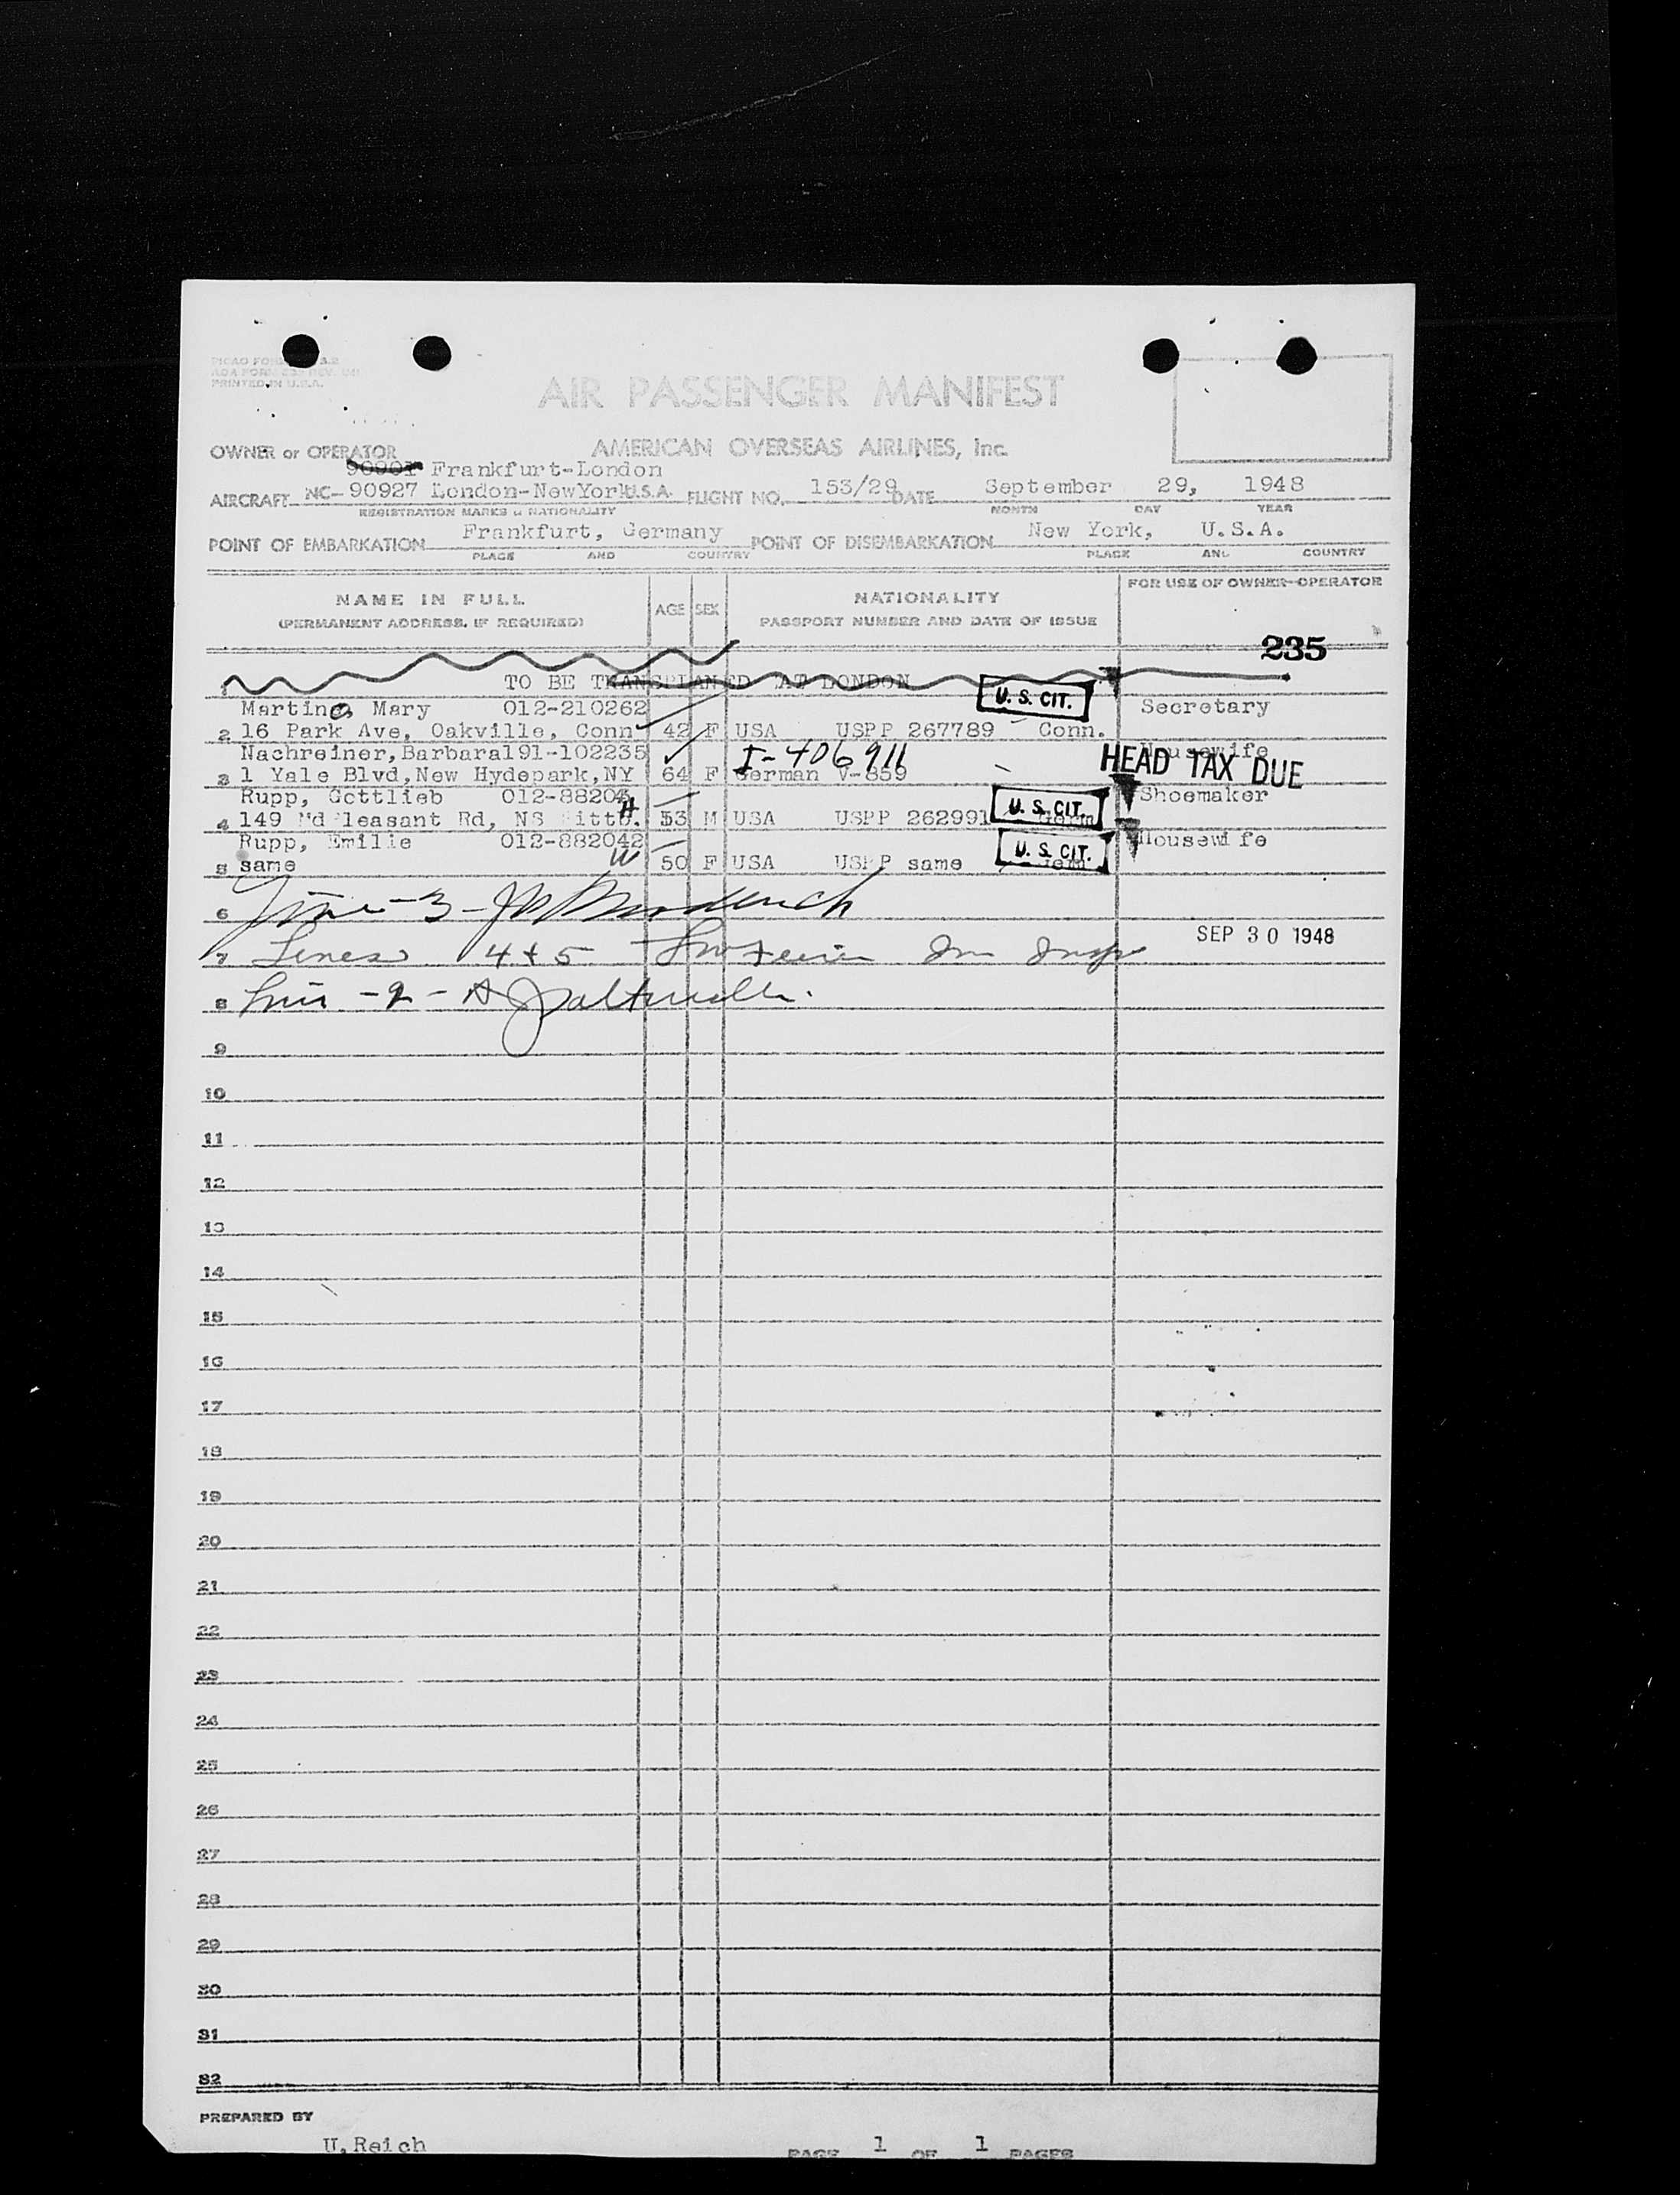 PRINTED IN U.S.A.
AIR PASSENGER MANIFEST
OWNER or OPERATOR AMERICAN OVERSEAS AIRLINES, Inc.
90901 Frankfurt-London
AIRCRAFT NC-90927 London-NewYork U.S.A. FLIGHT NO. 153/29 DATE September 29, 1948
REGISTRATION MARKS & NATIONALITY MONTH DAY YEAR
POINT OF EMBARKATION Frankfurt, Germany POINT OF DISEMBARKATION New York, U.S.A.
PLACE AND COUNTRY PLACE AND COUNTRY
NAME IN FULL AGE SEX NATIONALITY FOR USE OF OWNER-OPERATOR
(PERMANENT ADDRESS, IF REQUIRED) PASSPORT NUMBER AND DATE OF ISSUE
235
1 TO BE TRANSPLANED AT LONDON
U. S. CIT.
Martino, Mary 012-210262 Secretary
2 16 Park Ave, Oakville, Conn 42 F USA USPP 267789 Conn.
Nachreiner,Barbara191-102235 I-406911 Housewife
HEAD TAX DUE
3 1 Yale Blvd,New Hydepark,NY 64 F German V-859
Rupp, Gottlieb 012-88204 Shoemaker
4 149 Pleasant Rd, NS Pittb. H 53 M USA USPP 262991 U. S. CIT.
Rupp, Emilie 012-882042 Housewife
5 same W 50 F USA USPP same U. S. CIT.
6 Line - 3 -
7 Lines 4 + 5 Im Insp SEP 30 1948
8 Line - 2 -
9
10
11
12
13
14
15
16
17
18
19
20
21
22
23
24
25
26
27
28
29
30
31
32
PREPARED BY
U.Reich PAGE 1 OF 1 PAGES